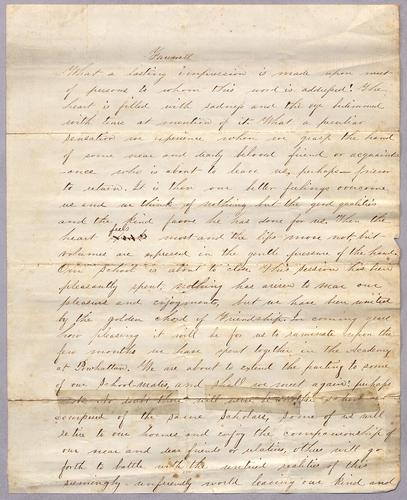 Farewell
What a lasting impression is made upon most
of persons to whom this word is addressed! The
heart is filled with sadness and the eye bedimmed
with tears at mention of it. What a peculiar
sensation we experience when we grasp the hand
of some near and dearly beloved friend or acquaint-
ance who is about to leave us, perhaps never
to return. It is then our better feelings overcome
us and we think of nothing but the good qualities
and the kind favors he has done for us. Then the
heart feels most and the lips move not, but
volumes are expressed in the gentle pressure of the hand.
Our School is about to close. This session has been
pleasantly spent, nothing has arisen to mar our
pleasures and enjoyments, but we have been united
by the golden chord of Friendship. In coming years
how pleasing it will be for us to ruminate upon the
few months we have spent together in the Academy
at Powhattan. We are about to extend the parting to some
of our School-mates, and shall we meet again? perhaps
not. No doubt there will never be another school
composed of the same Scholars, Some of us will
retire to our homes and enjoy the companionship of
our near and dear friends or relatives, others will go
forth to battle with the untried realities of this
seemingly unfriendly world leaving our kind and